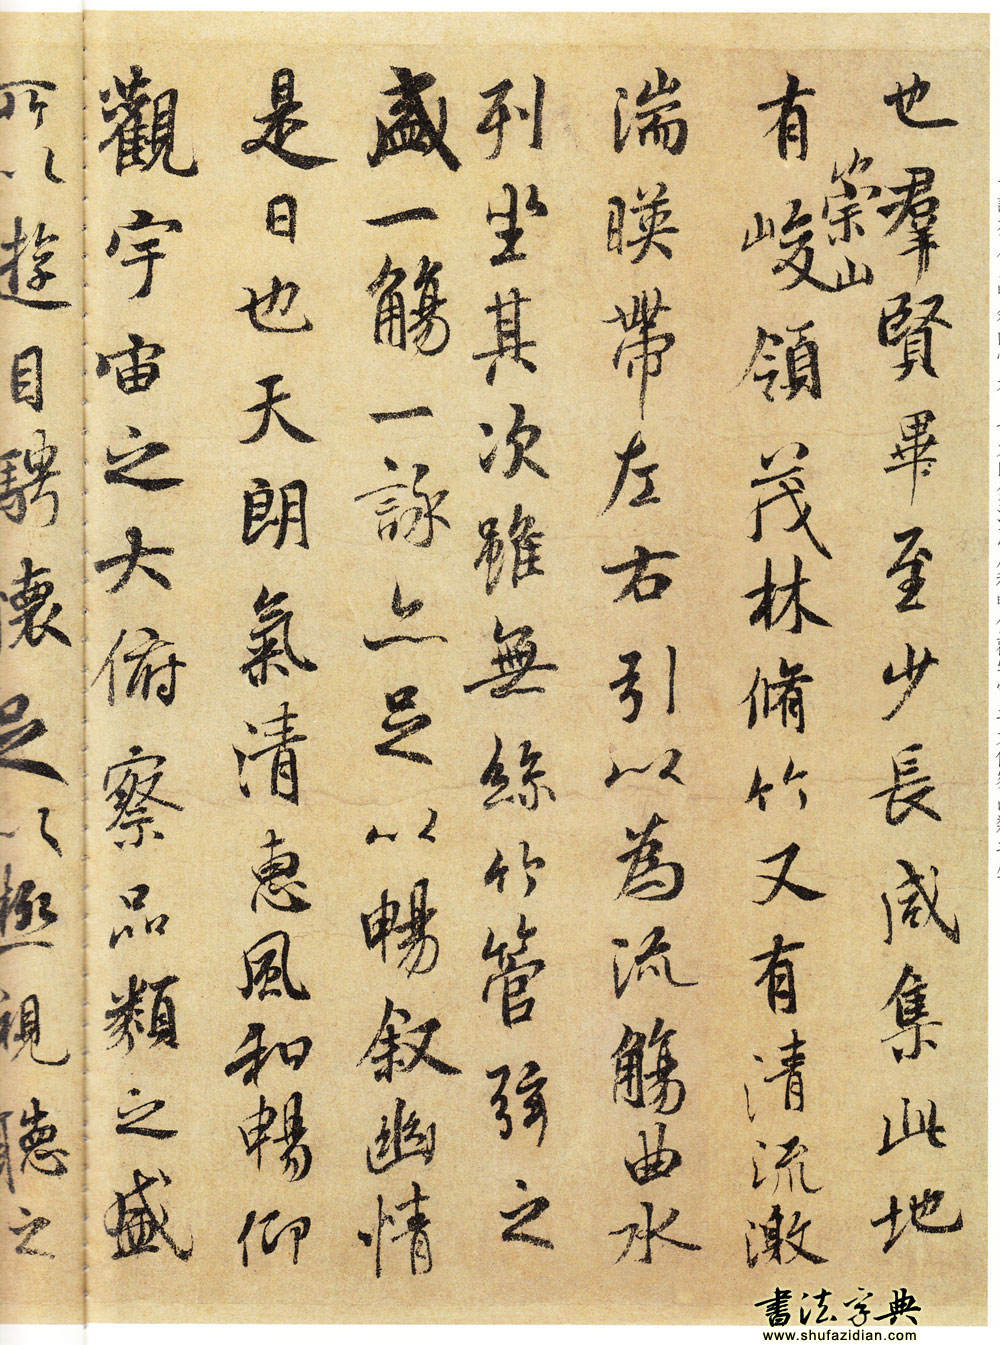 也羣賢畢至少長咸集此地
有崇山峻領茂林脩竹又有清流激
湍暎帶左右引以為流觴曲水
列坐其次雖無絲竹管弦之
盛一觴一詠亦足以暢叙幽情
是日也天朗氣清惠風和暢仰
觀宇宙之大俯察品類之盛
所以遊目騁懷足以極視聽之
書法字典
www.shufazidian.com